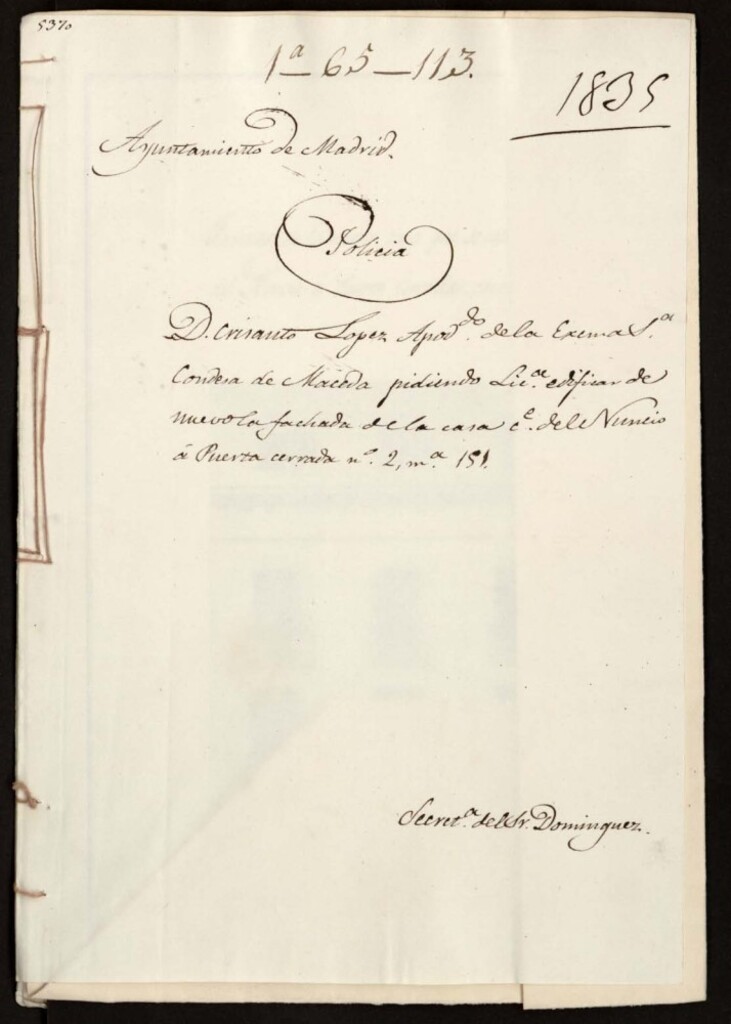 5370
1ª–65–113.
1835
Ayuntamiento de Madrid.
Policia
D. Crisanto Lopez Apodº. de la Exema Sª.
Condesa de Maceda pidiendo Licª. edificar de
nuevo la fachada de la casa cᵉ. del Nuncio
á Puerta cerrada nº. 2, mª. 151.
Secretª. del Sr. Dominguez.